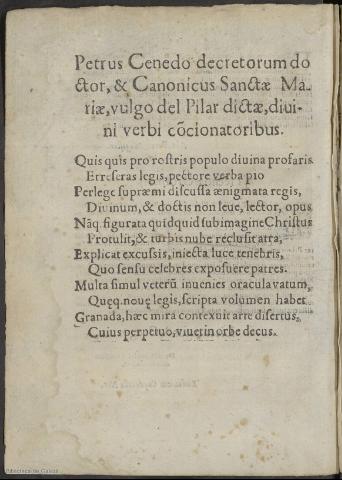 Petrus Cenedo decretorum do
ctor, & Canonicus Sanctæ Ma-
riæ, vulgo del Pilar dictæ, diui-
ni verbi cõcionatoribus.
Quis quis pro rostris populo diuina profaris.
Et reseras legis, pectore verba pio
Perlege supræmi discussa ænigmata regis,
Diuinum, & doctis non leue, lector, opus
Nãq. figurata quidquid sub imagine Christus
Protulit, & turbis nube reclusit atra,
Explicat excussis, iniecta luce tenebris,
Quo sensu celebres exposuere patres.
Multa simul veterũ inuenies oracula vatum,
Quęq. nouę legis, scripta volumen habet
Granada, hæc mira contexuit arte disertus,
Cuius perpetuo, viuet in orbe decus.
Biblioteca de Galicia